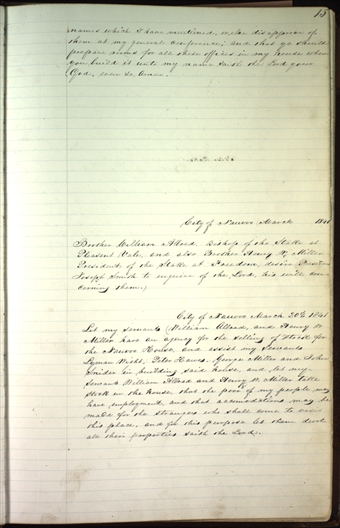 15
names which I have mentioned, or else disapprove of
them at my general conference; and that ye should
prepare rooms for all these offices in my house when
you build it unto my name saith the Lord your
God, even so, Amen.
City of Nauvoo March 1841
Brother William Allred Bishop of the Stake at
Pleasant Vale, and also Brother Henry W. Miller
President of the Stake at Freedom, desire President
Joseph Smith to inquire of the Lord, his will con-
cerning them,
City of Nauvoo March 20th 1841
Let my servants William Allred, and Henry W.
Miller have an agency for the selling of Stock for
the Nauvoo House, and assist my Servants
Lyman Wight, Peter Haws, George Miller and John
Snider in building said house, and let my
Servants William Allred and Henry W. Miller take
Stock in the house, that the poor of my people may
have employment, and that accomodations may be
made for the strangers who shall come to
this place, and for this purpose let them devote
all their properties saith the Lord.